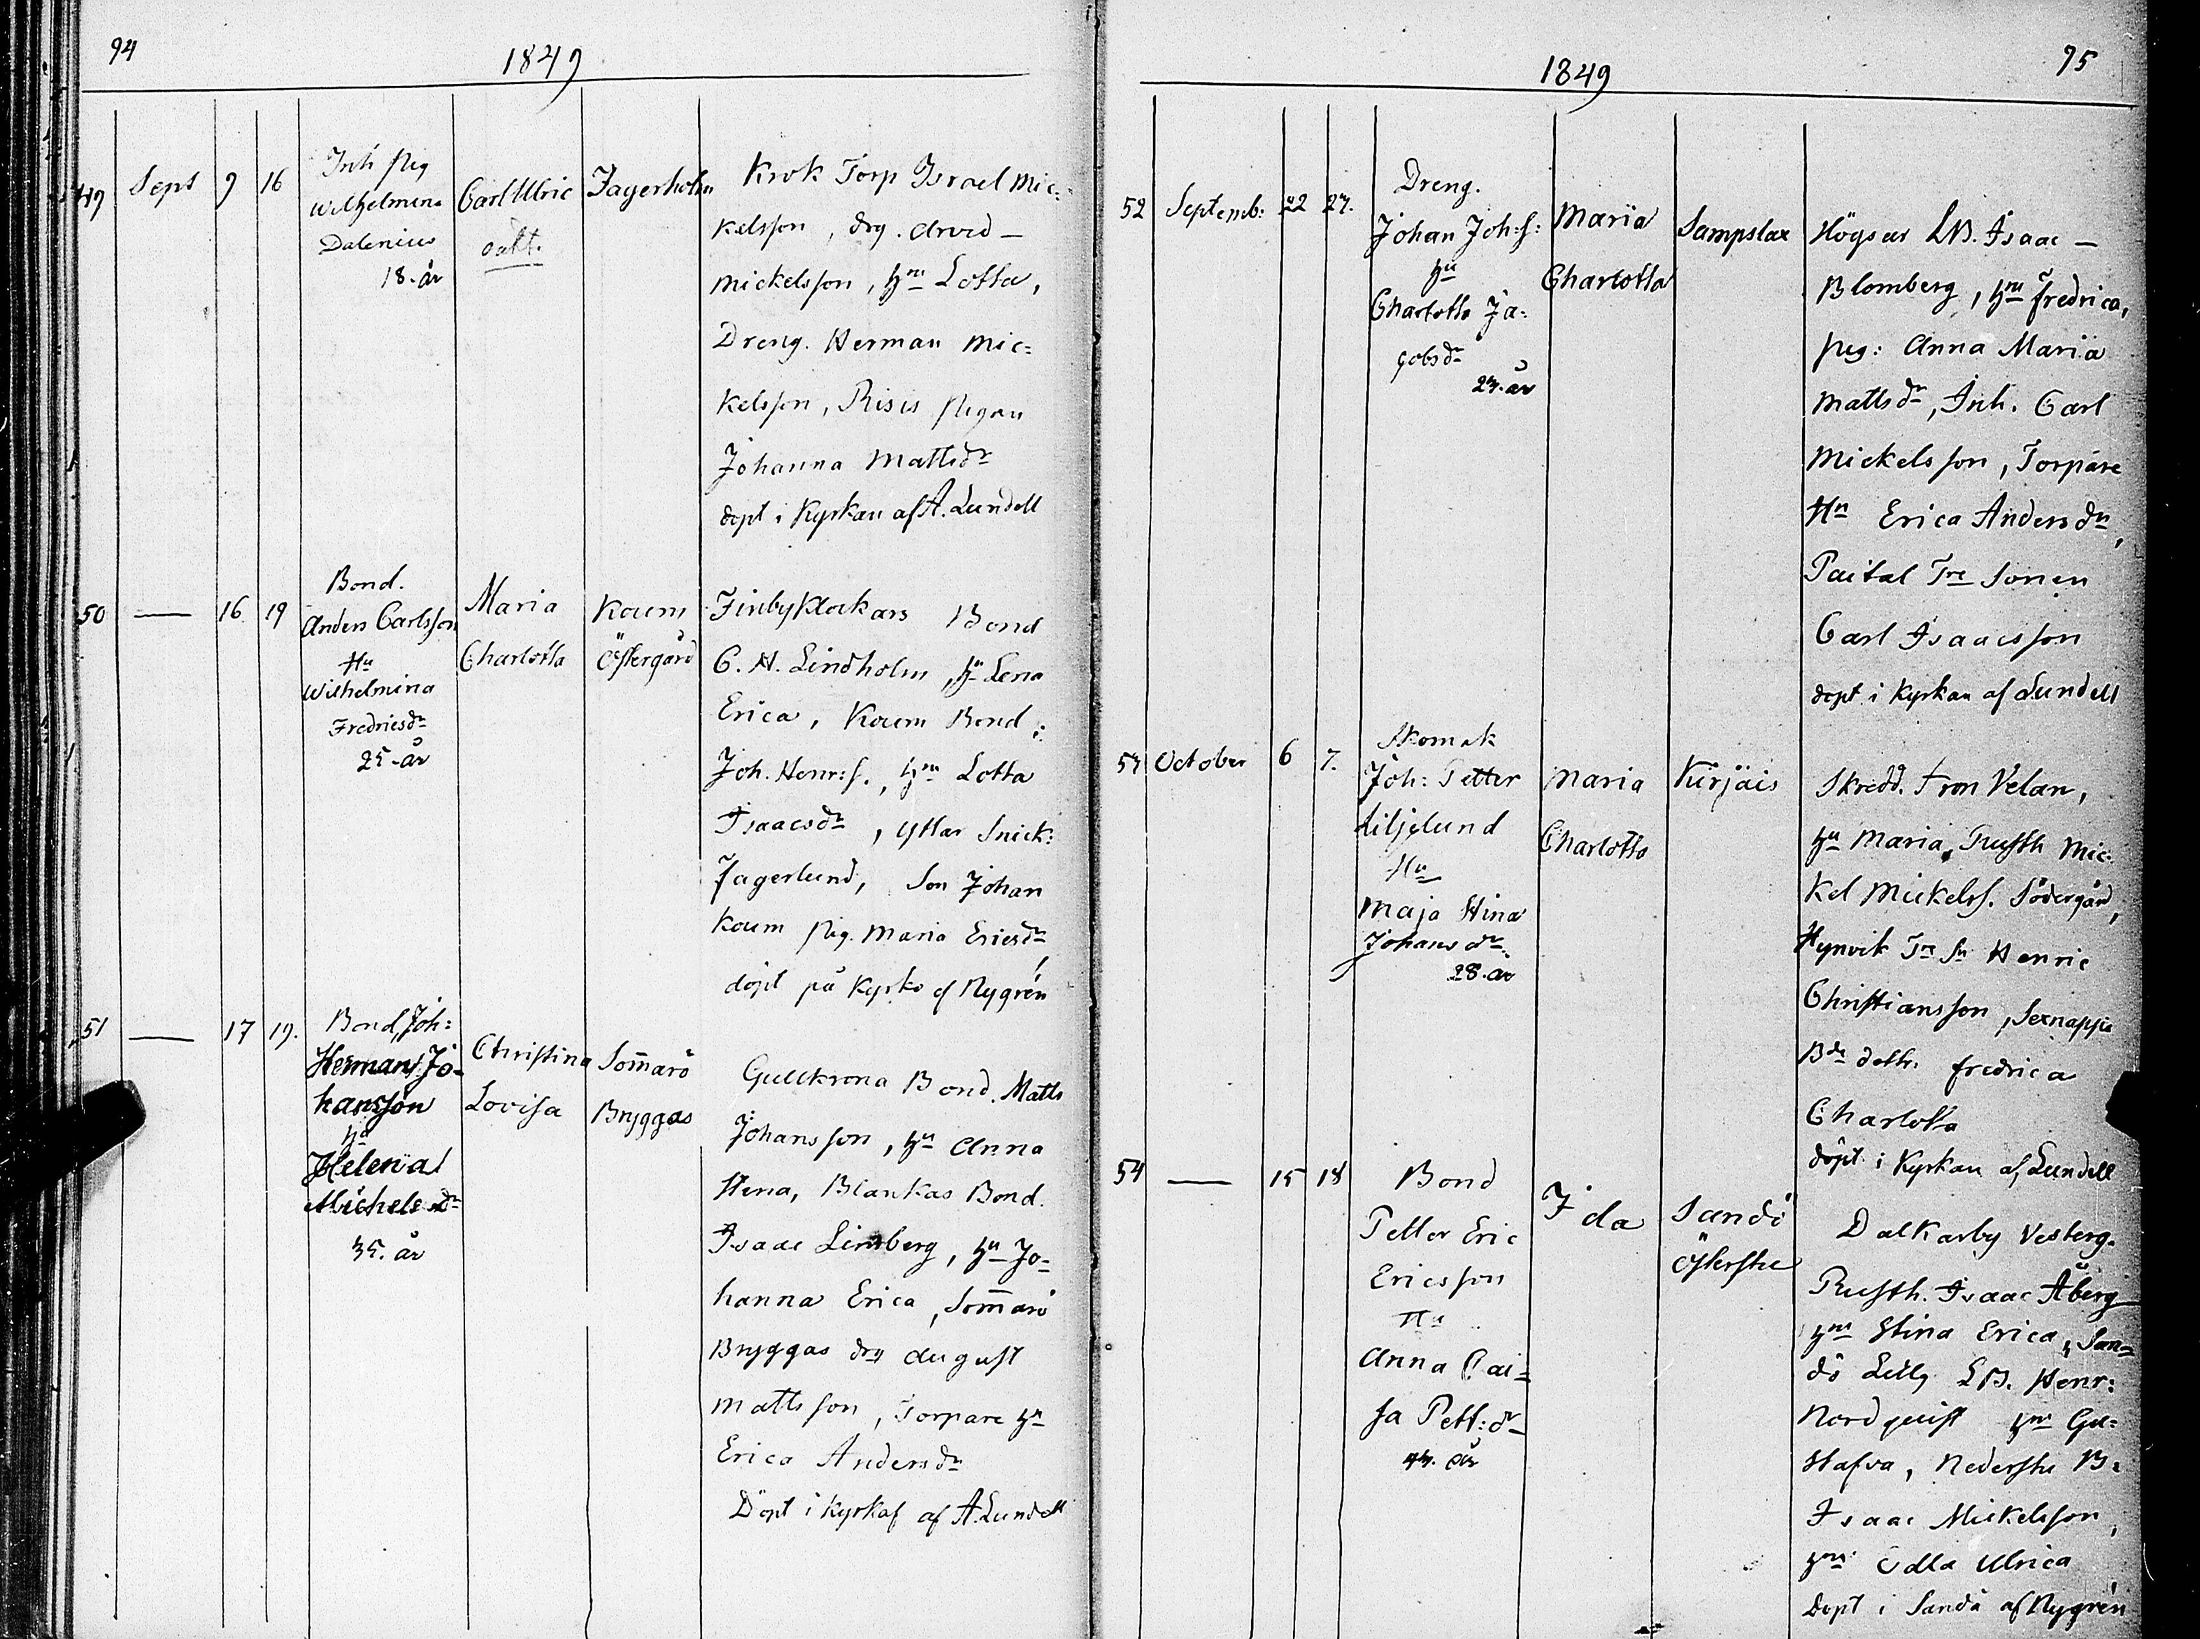 94
1849
49 Sept 9 16
Inh pig
Wilhelmina
Dalenius
18. år
Carl Ulric
oält.
Jagerholm
Krok Torp Israel Mic:
kelsson, drg. Arvid —
Mickelsson, hru Lotta,
Dreng. Herman Mic:
kelsson, Risis pigan
Johanna Mattsdr
döpt i Kyrkan af A. Lundell
50 — 16 19
Bond.
Anders Carlsson
Hu
Wilhelmina
Fredricsdr
25. år
Maria
Charlotta
Koum
Östergård
Finby Klockars Bond
C. H. Lindholm, hu Lena
Erica, Koum Bond:
Joh. Henr:s., hru Lotta
Isaacsdr, Yttar Snick:
Fagerlund, Son Johan
Koum pig. Maria Ericsdr,
döpt på Kyrko af Nygrén
51 — 17 19.
Bond, Joh:
Herman Jo-
hansson
hu
Helena
Michelsdr
35. år
Christina
Lovisa
Som̄arö
Bryggas
Gullkrona Bond. Matts
Johansson, hu Anna
Stina, Blankas Bond.
Isaac Limberg, hu Jo-
hanna Erica, Som̄arö
Bryggas drg August
Mattsson, Torpare hu
Erica Andersdr
Döpt i Kyrkaf af A. Lundell
95
1849
52 Septemb: 22 23.
Dreng.
Johan Joh:s:
hu
Charlotta Ja:
cobsdr
23. år
Maria
Charlotta
Sampslax
Högsar LB. Isaac —
Blomberg, hru Fredrica,
pig: Anna Maria
Mattsdr, Inh. Carl
Mickelsson, Torpare
Hu Erica Andersdr,
Paital Tre Sonen
Carl Isaacsson
döpt i Kyrkan af Lundell
53 October 6 7.
Skomak
Joh: Petter
Liljelund
Hu
Maja Stina
Johansdr
28. år
Maria
Charlotta
Kirjais
Skredd. Fron Velan,
hu Maria, Rusth Mic:
kel Mickelss. Södergård,
Hynvik Tre Sn Henric
Christiansson, Sexnappa
Bde dottr. Fredrica
Charlotta
döpt i Kyrkan af Lundell
54 — 15 18
Bond
Petter Eric
Ericsson
Hu
Anna Cai=
sa Pett:dr
43. år
Ida
Sandö
Österste
Dalkarby Vesterg.
Rusth. Isaac Åberg
hru Stina Erica, San=
dö Lillg LB. Henr:
Nordquist hru Gu=
stafva, Nederste B:
Isaac Mickelsson,
hru Edla Ulrica
Döpt i Sandö af Nygrén